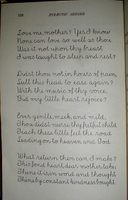 128
Love me, mother? Yes I know
None can love so well as thou
Was it not upon thy breast
I was taught to sleep and rest?
Didst thou not in hours of pain,
Lull this head to ease again?
With the music of thy voice,
Bid my little heart rejoice?
Ever gentle, meek and mild,
Thou didst nurse thy fretful child
Teach these little feet the road
Leading on to heaven and God
What return then can I make?
This fond heart, dear mother take
Thine it is in word and thought
Thine by constant kindness bought